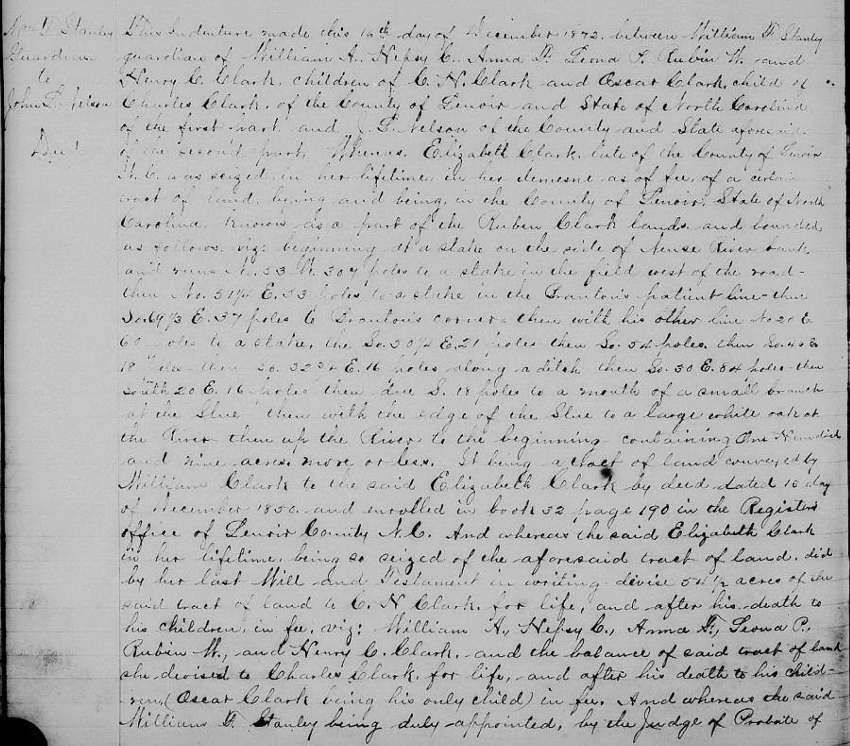 Wm F Stanley
Guardian
to
John L. Nelson
Deed
This Indenture made this 10th day of December 1872 between William F Stanley
guardian of William A., Nepsy C., Anna F. Leona P. Rubin W. and
Henry C. Clark, children of C. N. Clark and Oscar Clark, child of
Charles Clark, of the County of Lenoir and State of North Carolina
of the first part and J. L. Nelson of the County and State aforesaid
of the second part, Whereas, Elizabeth Clark, late of the County of Lenoir
N. C. was seized in her lifetime, in her demesne as of fee, of a certain
tract of land, lying and being, in the County of Lenoir, State of North
Carolina known as a part of the Ruben Clark lands and bounded
as follows, viz: beginning at a stake on the side of Neuse River bank
and runs No. 33 W. 307 poles to a stake in the field west of the road-
then No. 51 1/4 E. 33 poles to a stake in the patient line - then
E. 37 poles to corner - then with his other line No 20 E
60 poles to a stake, the So. E. 21 poles then So. 54 poles, then So. 40 E
18 poles - then So. E. 16 poles along a ditch then So. 30 E. 84 poles - then
South 20 E. 16 poles then due S. 18 poles to a mouth of a small branch
at the Slue then with the edge of the Slue to a large white oak at
the River then up the River to the beginning containing One Hundred
and nine acres, more or less. It being a tract of land conveyed by
William Clark to the said Elizabeth Clark by deed dated 18 day
of December 1850 and enrolled in book 32 page 190 in the Registers
office of Lenoir County N. C. And whereas the said Elizabeth Clark
in her lifetime, being so seized of the aforesaid tract of land, did
by her last Will and Testament in writing devise 54 1/2 acres of the
said tract of land to C. N Clark, for life, and after his death to
his children, in fee, viz: William A., Nepsy C., Anna F., Leona P.,
Rubin W., and Henry C. Clark, and the balance of said tract of land
she devised to Charles Clark, for life, and after his death to his child-
ren, (Oscar Clark being his only child) in fee, And whereas the said
William F. Stanley being duly appointed, by the Judge of Probate of